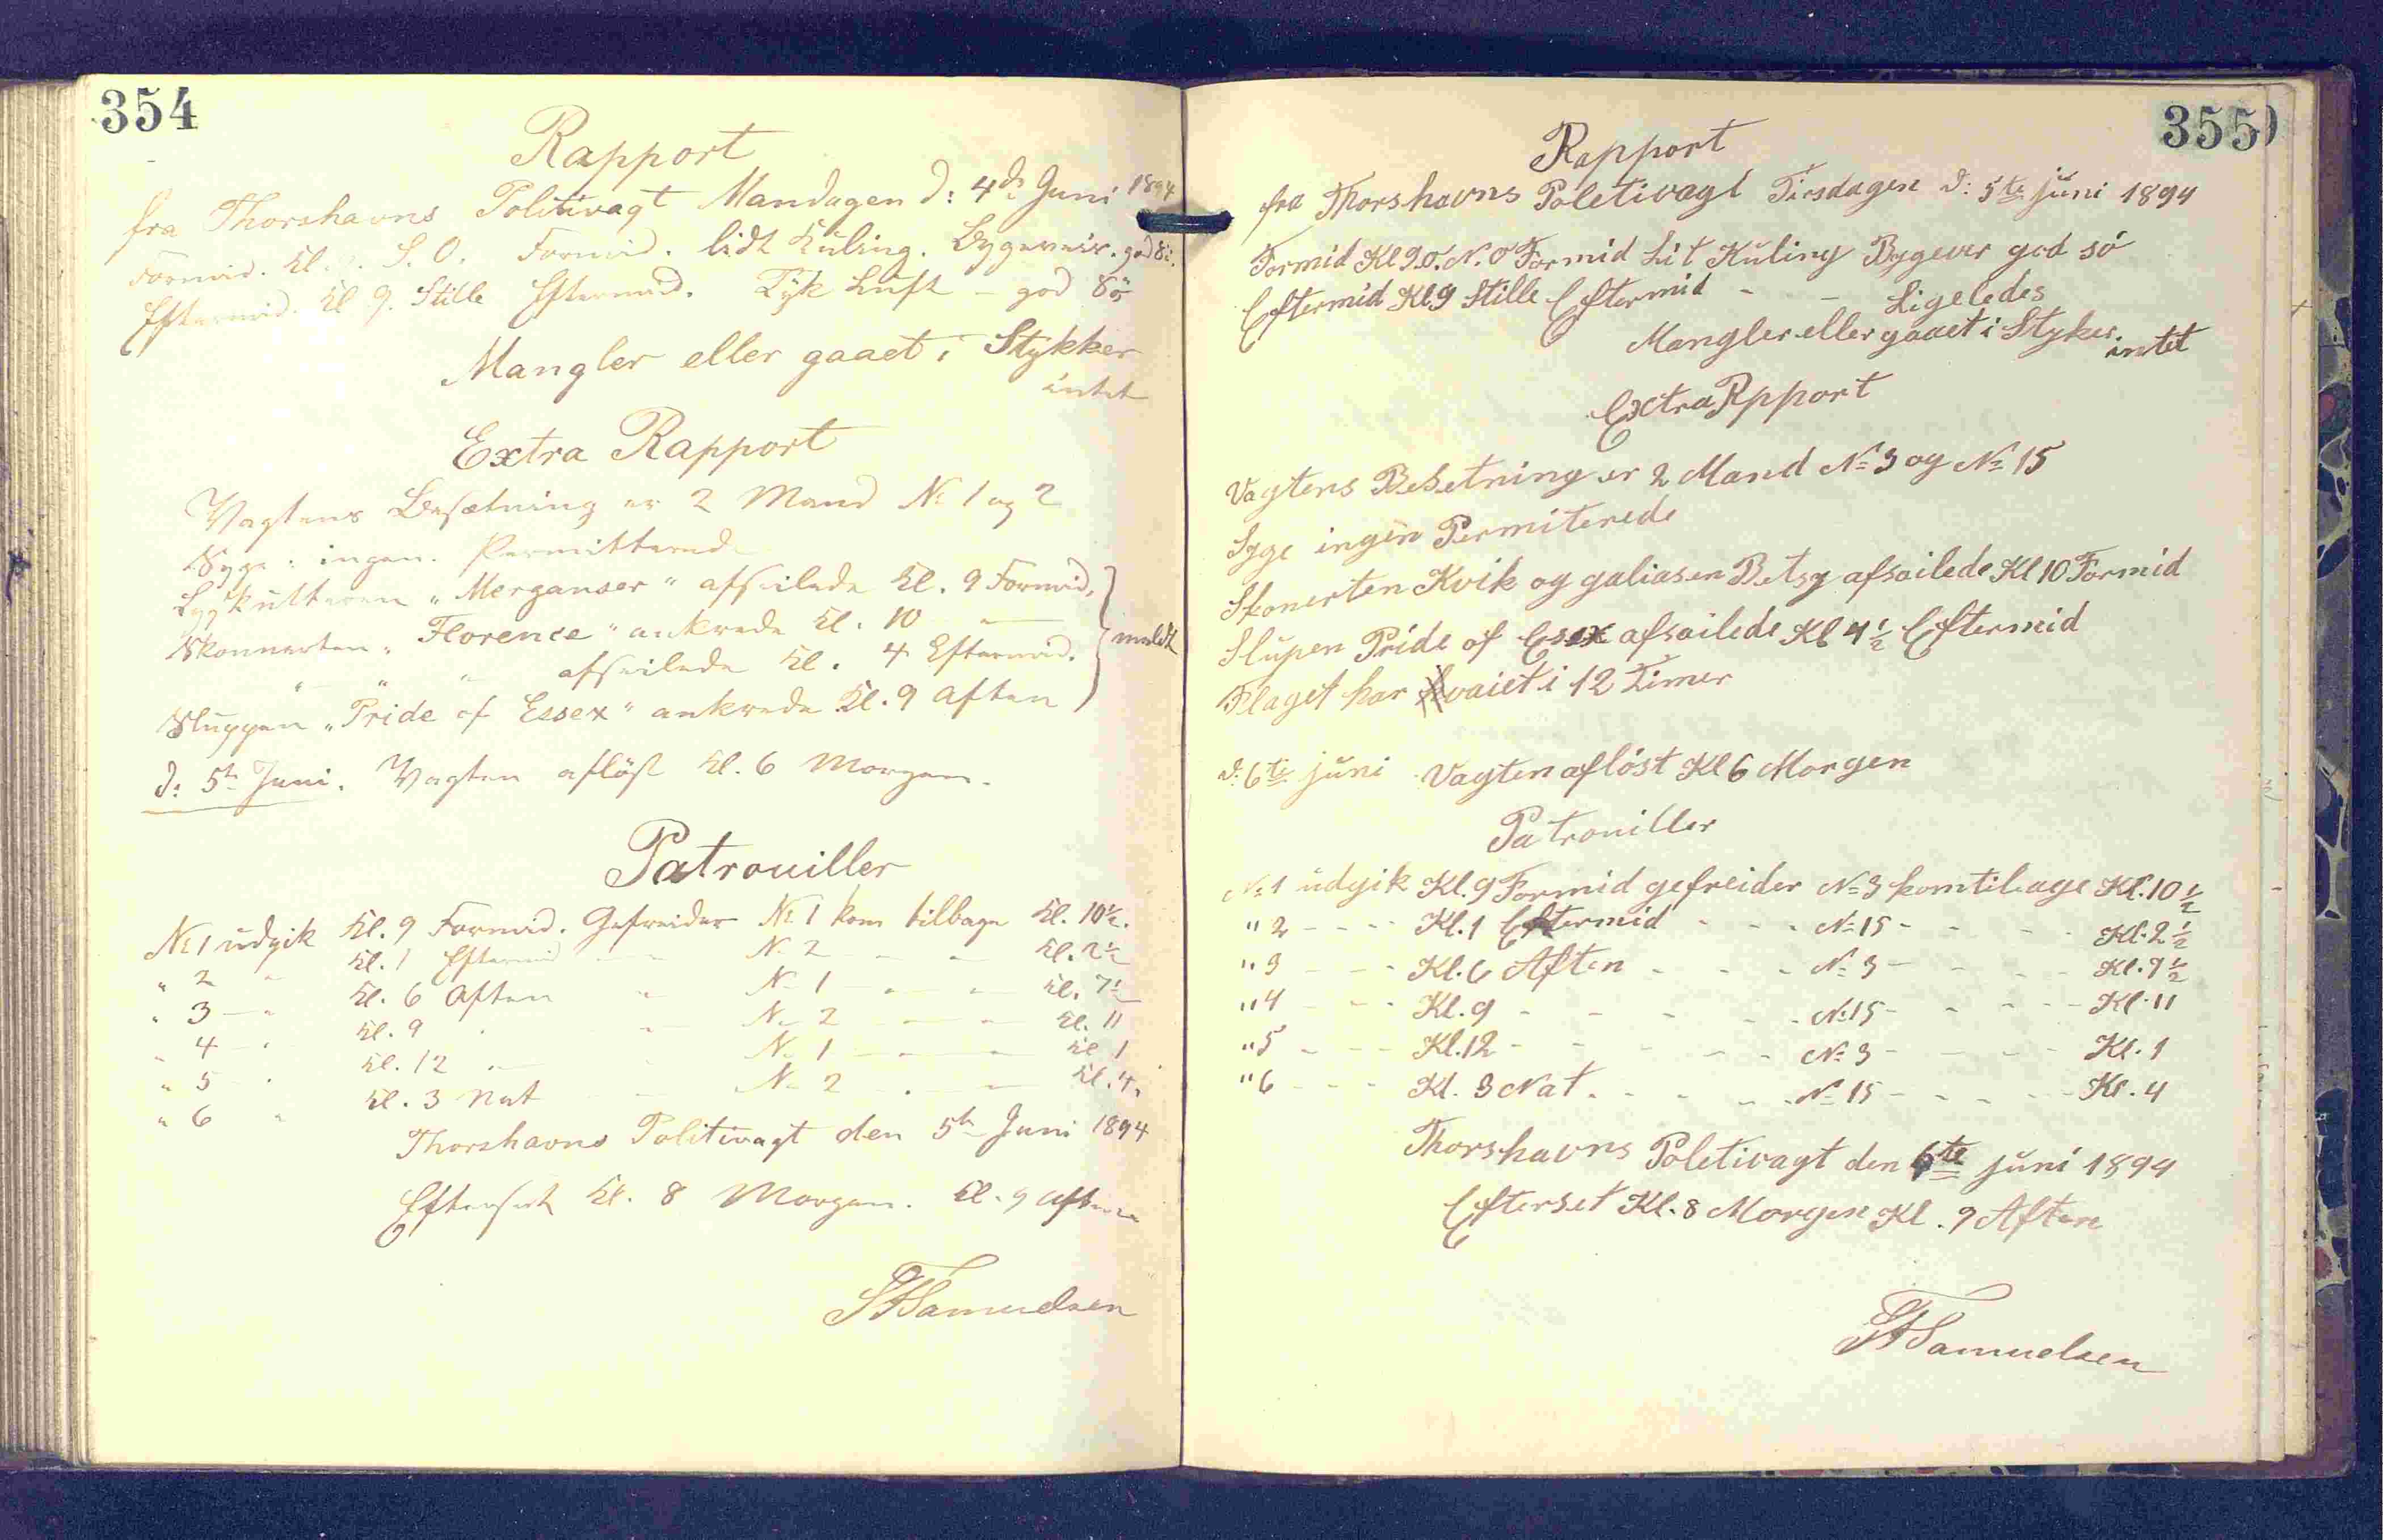 354
Rapport
fra Thorshavns Politivagt Mandagen d: 4de Juni 1894
Formid. Kl. S. O. Formid. lidt Kuling. Bygeveir. god Sö.
Eftermid. Kl 9. Stille Eftermid. Tyk Luft - god Sö
Mangler eller gaaet i Stykker
intet
Extra Rapport
Vagtens Besætning er 2 Mand No 1 og 2
Syge: ingen. Permitterede
Lystkutteren „Merganser“ afseilede Kl. 9 Formid.
Skonnerten „Florence“ ankrede Kl. 10 "
" " " afseilede Kl. 4 Eftermid.
meldt
Sluppen „Pride of Essex“ ankrede Kl. 9 Aften
d: 5te Juni. Vagten aflöst Kl. 6 Morgen.
Patrouiller
No 1 udgik Kl. 9 Formid. Gefreider No 1 kom tilbage Kl. 10½.
" 2 " Kl. 1 Eftermid " No 2 " " Kl. 2½
" 3 " Kl. 6 Aften " No 1 " " Kl. 7½
" 4 " Kl. 9 " " No 2 " " Kl. 11
" 5 " Kl. 12 " " No 1 " " Kl 1
" 6 " Kl. 3 Nat " No 2 " " Kl. 4.
Thorshavns Politivagt den 5te Juni 1894
Efterset Kl. 8 Morgen. Kl. 9 Aften
Samuelsen
355
Rapport
fra Thorshavns Poletivagt Tirsdagen d: 5te juni 1894
Formid Kl 9 O. N. O Formid Lit Kuling Bygever god só
Eftermid Kl 9 Stille Eftermid - - Ligeledes
Mangler eller gaaet i Styker
intet
Extra Rpport
Vagtens Besetning er 2 Mand No 3 og No 15
Syge ingen Permiterede
Skonerten Kvik og galiasen Betsy afsailede Kl 10 Formid
Slupen Pride of Essex afsailede Kl 4½ Eftermid
Flaget har vaiet i 12 Timer
d: 6te juni Vagten aflóst Kl 6 Morgen
Patrouiller
No 1 udgik Kl. 9 Formid gefreider No 3 kom tilbage Kl. 10½
" 2 - - - Kl. 1 Eftermid - - - No 15 - - - Kl. 2½
" 3 - - - Kl. 6 Aften - - - No 3 - - - Kl. 7½
" 4 - - - Kl. 9 - - - No 15 - - - Kl. 11
" 5 - - - Kl. 12 - - - No 3 - - - Kl. 1
" 6 - - - Kl. 3 Nat - - - No 15 - - - Kl. 4
Thorshavns Poletivagt den 6te juni 1894
Efterset Kl. 8 Morgen Kl. 9 Aften
Samuelsen